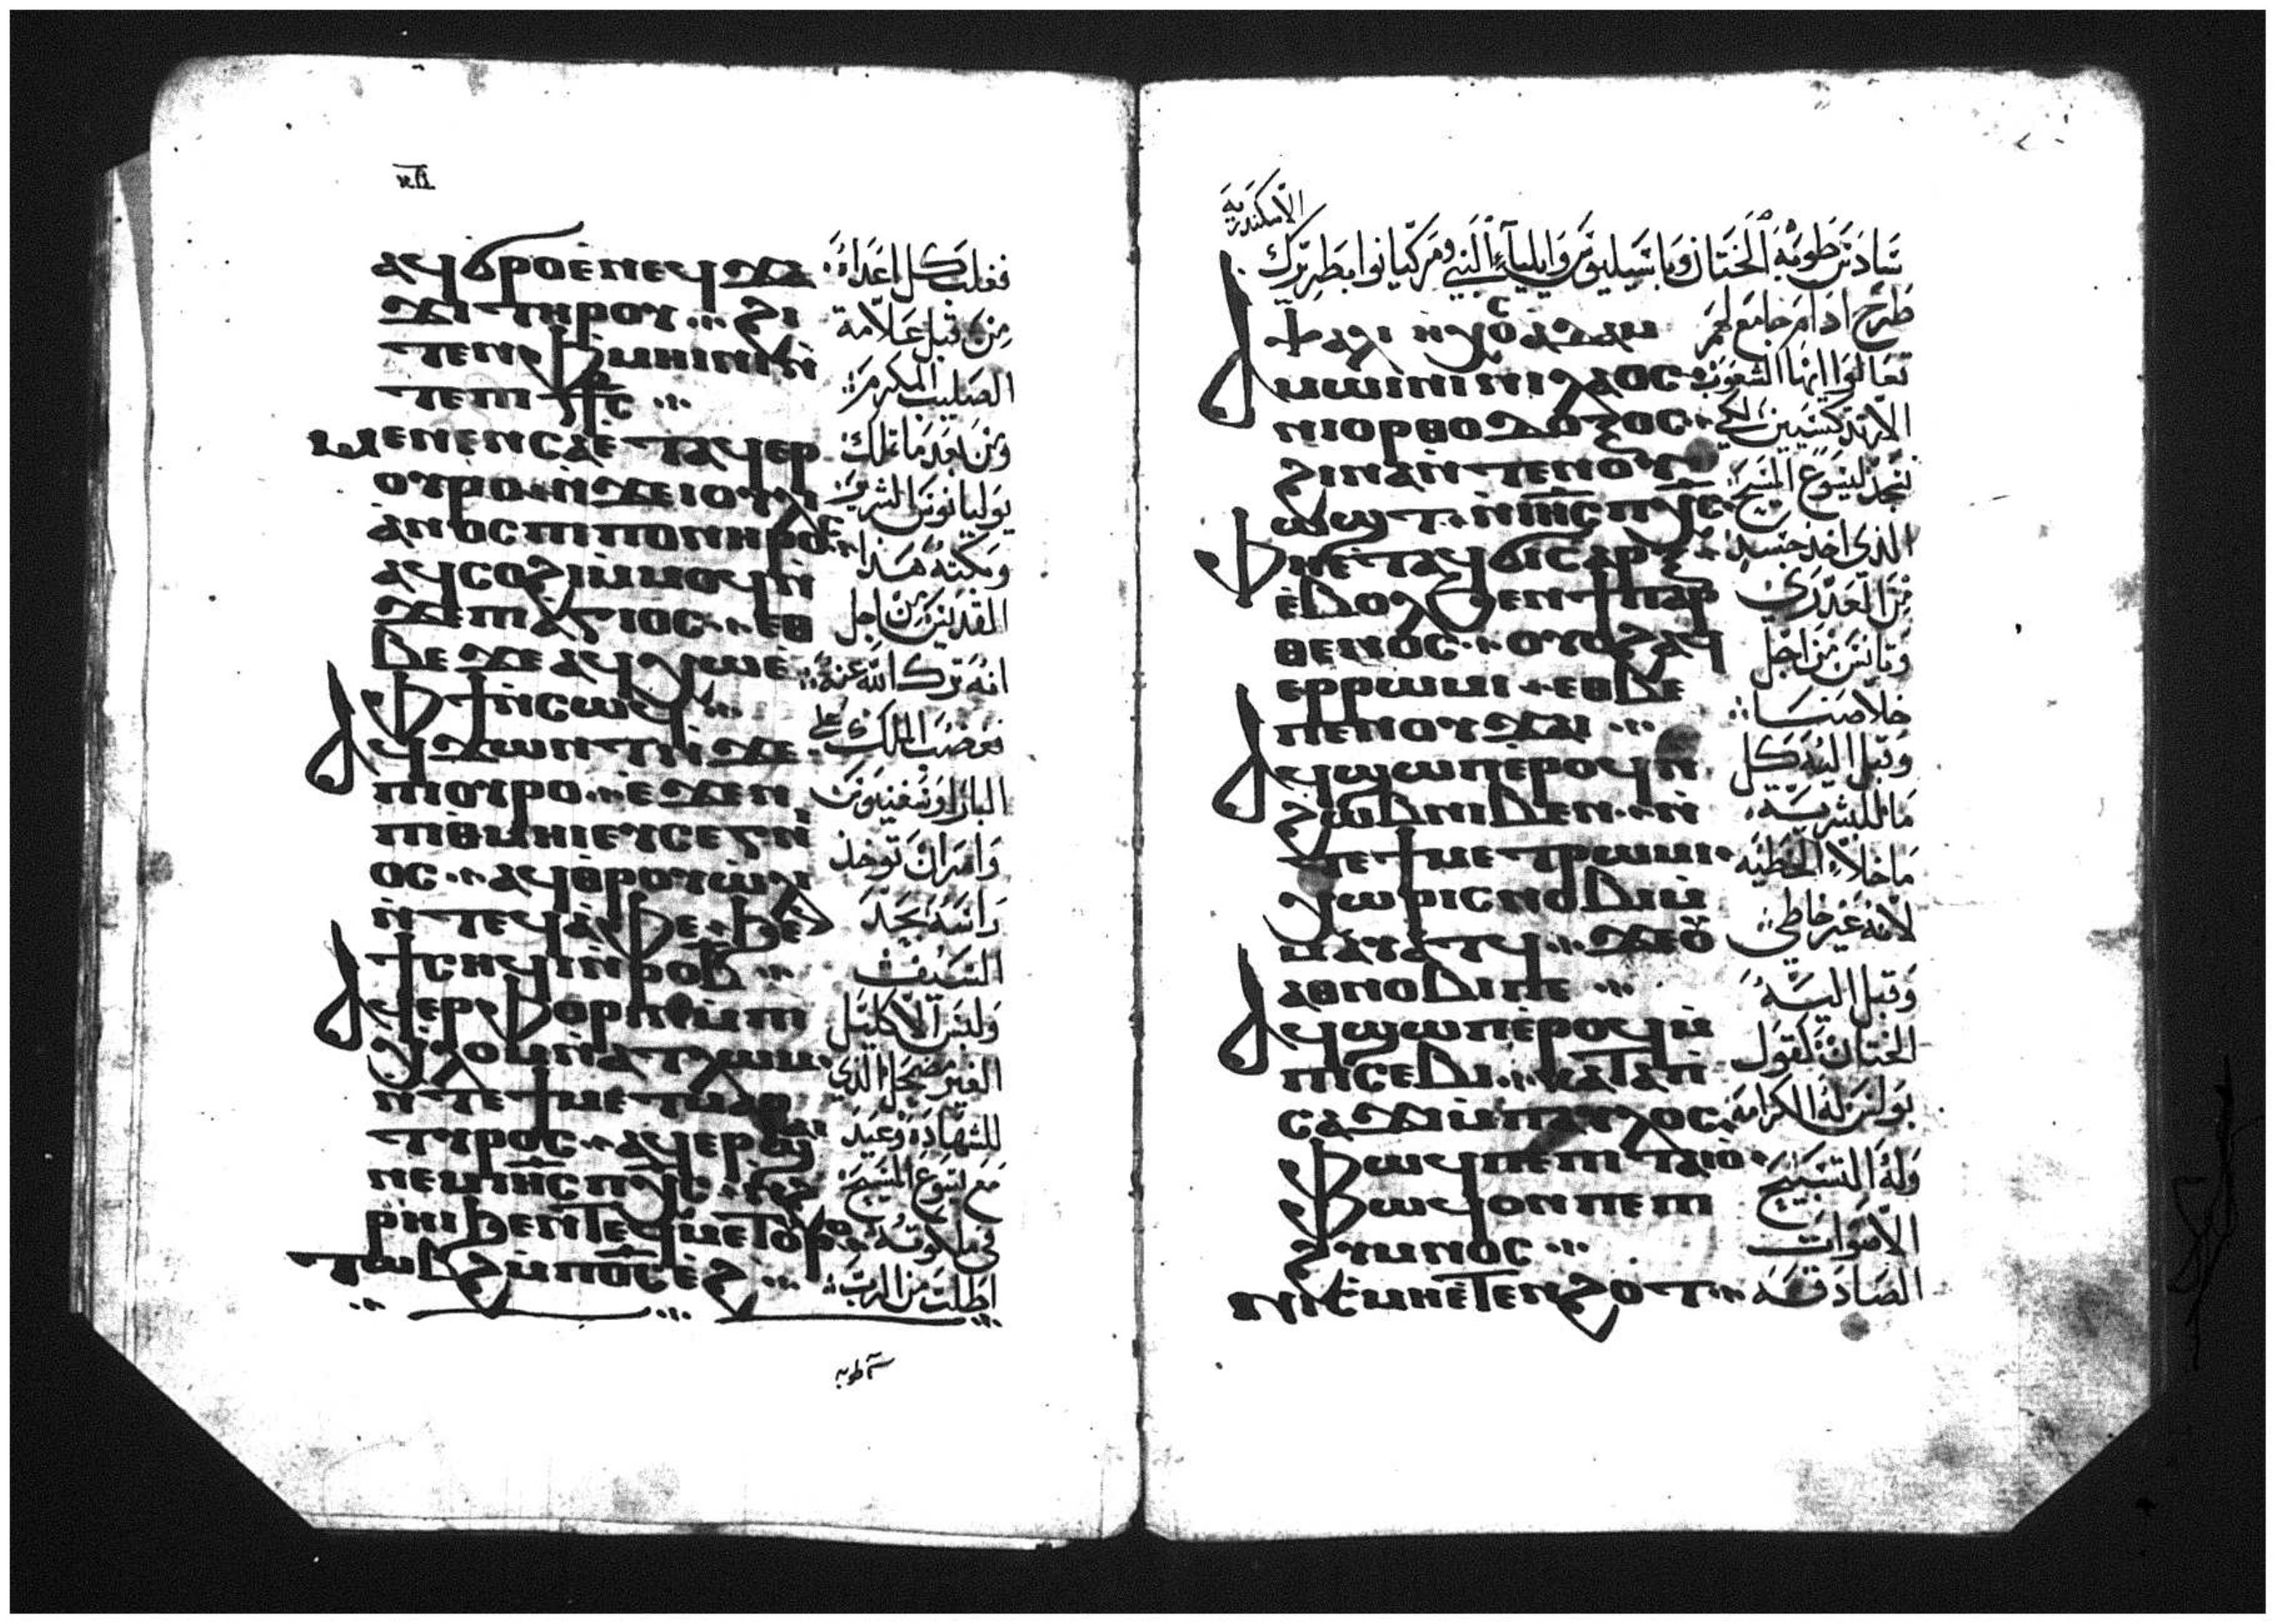 ⲁϥϭⲣⲟ ⲉⲛⲉϥϫⲁ
ϫⲓ ⲧⲏⲣⲟⲩ ϩⲓ
ⲧⲉⲛ ⲫⲙⲏⲓⲛⲓ ⲛ̀
ⲧⲉ ⲡⲓ
ⲙⲉⲛⲉⲛⲥⲁ ⲉⲧⲁϥⲉⲣ
ⲟⲩⲣⲟ ⲛ̀ϫⲉ ⲓⲟⲩⲗⲓ
ⲁⲛⲟⲥ ⲡⲓⲡⲟⲛⲏⲣⲟⲥ
ⲁϥⲥⲟϩⲓ ⲙⲙⲟϥ ⲛ̀
ϫⲉ ⲡⲓⲁⲅⲓⲟⲥ ⲉⲑ
ⲃⲉ ϫⲉ ⲁϥⲭⲱ ⲙ̀
ⲫϯ ⲛ̀ⲥⲱϥ
ⲁϥϫⲱⲛⲧ ⲛ̀ϫⲉ
ⲡⲓⲟⲩⲣⲟ ⲉϫⲉⲛ
ⲡⲓⲑⲙⲏⲓ ⲉⲩⲥⲉⲅⲛⲓ
ⲟⲥ ⲁϥⲑⲣⲟⲩⲱ̀ⲗⲓ
ⲛ̀ⲧⲉϥⲁ̀ⲫⲉ ϧⲉⲛ
ⲧⲥⲏϥⲓ ⲛ̀ⲣⲟ ⲃ̅
ⲁϥⲉⲣⲫⲟⲣⲓⲛ ⲙ̀ⲡⲓ
ⲭⲗⲟⲙ ⲛ̀ⲁⲧⲗⲱⲙ
ⲛ̀ⲧⲉ ϯⲙⲉⲧⲙⲁⲣ
ⲧⲩⲣⲟⲥ ⲁϥⲉⲣϣⲁⲓ
ⲛⲉⲙ ⲓⲏ̅ⲥ̅ ⲡⲭ̅ⲥ̅ ⲛ̀ϩ
ⲣⲏⲓ ϧⲉⲛ ⲧⲉϥⲙⲉⲧⲟⲩⲣⲟ
ⲧⲱⲃϩ ⲙ̀ⲡⲟ̅ⲥ̅ ⲉ̀ϩ
فغلب كل اعداه
من قبل علامة
الصليب المكرم
ومن بعد ما تملك
يوليانوس الشرير
وبكته هذا
القديس من اجل
انه ترك الله عنه
فغضب الملك على
البار اوسغنيوس
وامر ان توخذ
راسه بحد
السيف
ولبس الاكليل
الغير مضمحل الذي
للشهادة وعيد
مع يسوع المسيح
في ملكوته
اطلب من الرب
الاسكندرية
سادس طوبه الختان وباسيليوس وايلياء النبي ومركيانوا بطريرك
ⲯⲁⲗⲓ ⲏⲭⲟⲥ ⲁⲇⲁⲙ
ⲁⲙⲱⲓⲛⲓ ⲛⲓⲗⲁⲟⲥ
ⲛⲓⲟⲣⲑⲟⲇⲟⲝⲟⲥ
ϩⲓⲛⲁ ⲛ̀ⲧⲉⲛⲟⲩ
ⲱϣⲧ ⲛ̀ⲓⲏ̅ⲥ̅ ⲡⲭ̅ⲥ̅
ⲫⲏⲉⲧⲁϥϭⲓⲥⲁⲣⲝ
ⲉ̀ⲃⲟⲗ ϧⲉⲛ ϯⲡⲁⲣ
ⲑⲉⲛⲟⲥ ⲟⲩⲟϩ ⲁϥ
ⲉⲣⲣⲱⲙⲓ ⲉⲑⲃⲉ
ⲡⲉⲛⲟⲩϫⲁⲓ
ⲁϥϣⲱⲡ ⲉⲣⲟϥ ⲛ̀
ϩⲱⲃ ⲛⲓⲃⲉⲛ ⲛ̀
ⲧⲉ ϯⲙⲉⲧⲣⲱⲙⲓ
ⲭⲱⲣⲓⲥ ⲛⲟⲃⲓ ⲙ̀
ⲙⲁⲩⲁⲧϥ ϫⲉ ⲟ̀
ⲁⲑⲛⲟⲃⲓ ⲡⲉ
ⲁϥϣⲱⲡ ⲉ̀ⲣⲟϥ ⲙ̀
ⲡⲓⲥⲉⲃⲓ ⲕⲁⲧⲁ ⲡ
ⲥⲁϫⲓ ⲙ̀ⲡⲁⲩⲗⲟⲥ
ⲫⲱϥ ⲡⲉ ⲡⲓⲧⲁⲓⲟ
ⲫⲱϥ ⲟⲛ ⲡⲉ ⲡⲓ
ϩⲩⲙⲛⲟⲥ
طرح ادام جامع لحم
تعالوا ايها الشعوب
الارتدكسيين لكي
نسجد ليسوع المسيح
الذي اخذ جسد
من العذرى
وتانس من اجل
خلاصنا
وقبل اليه كل
ما للبشرية
ما خلا الخطيه
لانه غير خاطي
وقبل اليه
الختان كقول
بولس له الكرامه
وله التسبيح
الاموات
الصادقه